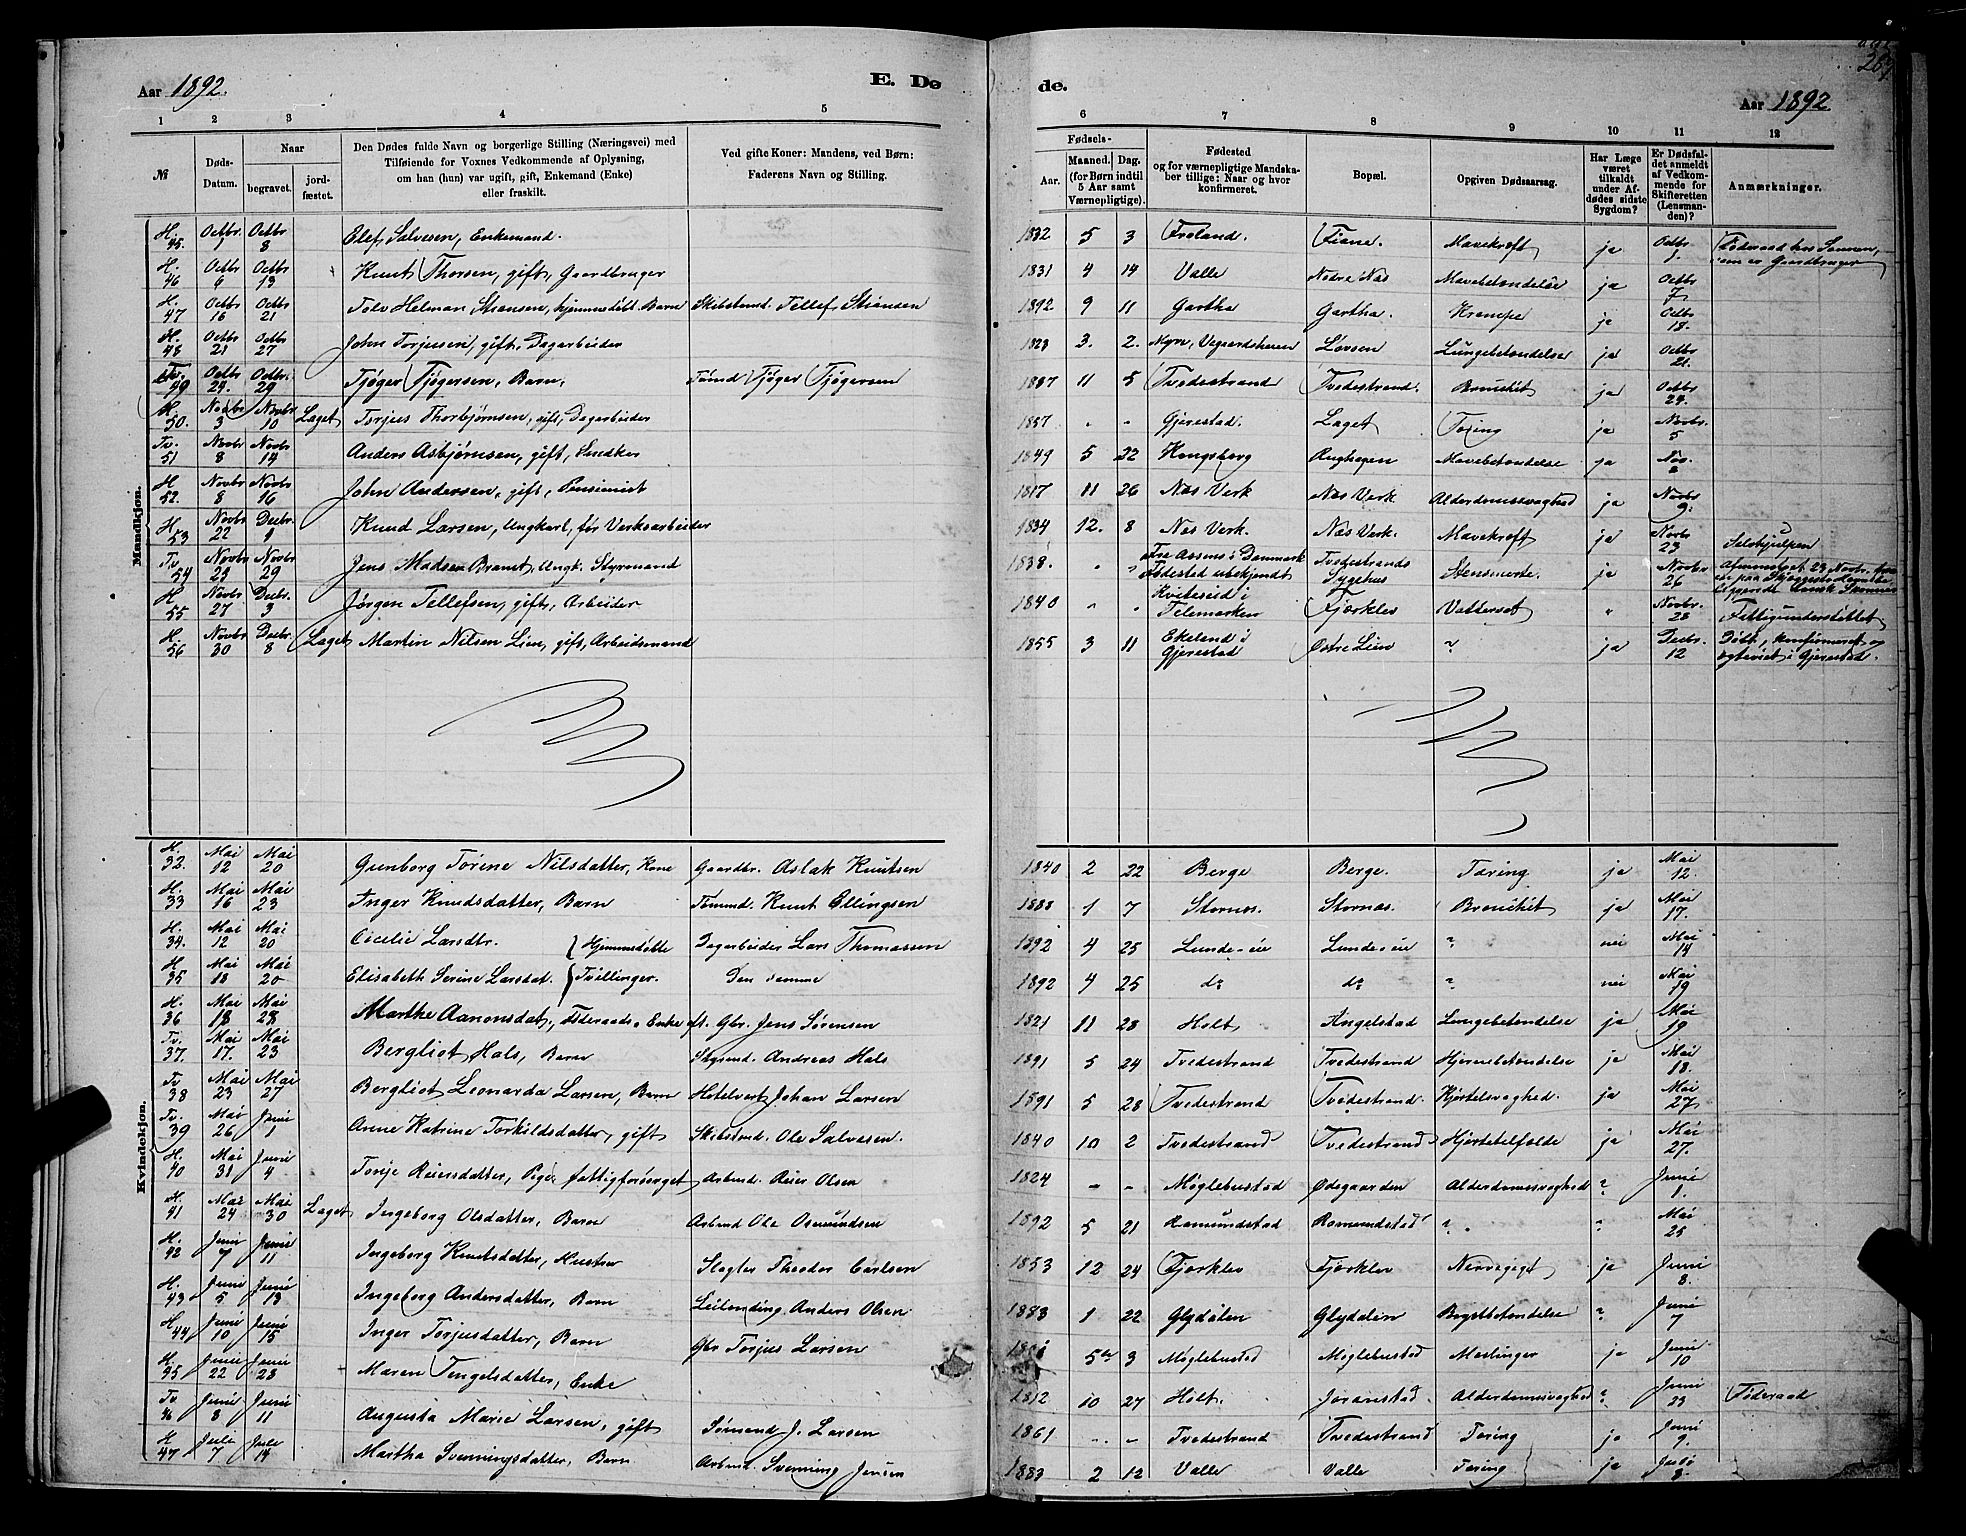 Aar 1892. E. Dø de. Aar 1892
1 2 3 4 5 6 7 8 9 10 11 12
№ Døds-Datum. Naar begravet. jordfæstet. Den Dødes fulde Navn og borgerlige Stilling (Næringsvei) med Tilføiende for Voxnes Vedkommende af Oplysning, om han (hun) var ugift, gift, Enkemand (Enke) eller fraskilt. Ved gifte Koner: Mandens, ved Børn: Faderens Navn og Stilling. Fødsels- Aar. Maaned. Dag. (for Børn indtil 5 Aar samt Værnepligtige). Fødested og for værnepligtige Mandskaber tillige: Naar og hvor konfirmeret. Bopæl. Opgiven Dødsaarsag. Har Læge været tilkaldt under Afdødes sidste Sygdom? Er Dødsfaldet anmeldt af Vedkommende for Skifteretten (Lensmanden)? Anmærkninger.
Mandkjøn.
H. 45. Octbr. 1 Octbr 8 Elef Salvesen, Enkemand. 1832 5 3 Froland. Fiane. Mavekræft ja Octbr 1. Føderaad hos Sønnen, som er Gaardbruger
H. 46 Octbr 6 Octbr 13 Knut Thorsen, gift, Gaardbruger 1831 4 14 Valle Nedre Næs Mavebetændelse ja Octbr 7
H. 47 Octbr 16 Octbr 21 Tolv Helman Stiansen, hjemmedøbt Barn Skibstmd. Tellef Stiansen 1892 9 11 Gartha Gartha. Krampe ja Octbr 18.
H. 48 Octbr 21 Octbr 27 John Torjussen, gift, Dagarbeider 1828 3. 2. Myre, Vegaardsheien Løvsen Lungebetændelse ja Octbr 21.
Tv. 49 Octbr 24. Octbr. 29 Tjøger Tjøgersen, Barn, Tømd Tjøger Tjøgersen 1887 11 5 Tvedestrand Tvedestrand. Bronchit ja Octbr 24.
H. 50. Novbr 3 Novbr 10 Laget Torjus Thorbjørnsen, gift, Dagarbeider 1857 " " Gjerestad. Laget Tæring ja Novbr. 5
Tv. 51 Novbr 8 Novbr 14 Anders Asbjørnsen, gift, Snedker 1849 5 22 Kongsberg Mavebetændelse ja Nov.
H 52. Novbr 8 Novbr 16 John Andersen, gift, Pensionist 1817 11 26 Næs Verk Næs Verk Alderdomssvaghed ja Novbr 9.
H. 53 Novbr 22 Decbr. 1 Knud Larsen, Ungkarl, før Verksarbeider 1834 12. 8 Næs Verk. Næs Verk. Mavekræft ja Novbr 23 Selvhjulpen
Tv 54 Novbr 23 Novbr. 29 Jens Madsen Brandt, Ungk. Styrmand 1838. " " Fra Assens i Danmark Fødested ubekjendt Tvedestrands Sygehus ja Novbr. 26
H 55 Novbr. 27 Decbr. 3 Jørgen Tellefsen, gift, Arbeider 1840 " " Kviteseid i Telemarken Fjærklev Vattersot " Novbr. 28 Fattigunderstøttet
H. 56 Novbr 30 Decbr. 8 Laget Martin Nilsen Lien, gift, Arbeidsmand 1855 3 11 Ekeland i Gjerestad Østre Lien " ja Decbr. 12 Døbt, konfirmeret og egteviet i Gjerestad.
Kvindekjøn.
H. 32. Mai 12 Mai 20 Gunborg Torine Nilsdatter, Kone Gaardbr. Aslak Knutsen 1840 2 22 Berge Berge. Tæring ja Mai 12.
H. 33 Mai 16 Mai 23 Inger Knudsdatter, Barn Tømmd. Knut Ellingsen 1888 1 7 Stornæs. Stornæs. Bronchit ja Mai 17.
H. 34. Mai 12 Mai 20 Cecilie Larsdtr. Hjemmedøbte Dagarbeider Lars Thomassen 1892 4 25 Lunde-eie Lunde-eie " nei Mai 14
H 35 Mai 18 Mai 20 Elisabeth Serine Larsdat. Tvillinger. Den samme 1892 4 25 do do " nei Mai 19
H. 36 Mai 18 Mai 28 Marthe Aanonsdat., Føderaads-Enke ft. Gbr. Jens Sørensen 1821 11 28 Holt Angelstad Lungebetændelse ja Mai 19
Tv. 37. Mai 17. Mai 23 Bergliot Hals, Barn Skipsmd. Andreas Hals 1891 5 24 Tvedestrand Tvedestrand Hjernebetændelse ja Mai 18.
Tv 38 Mai 23 Mai 27 Bergliot Leonarda Larsen, Barn Hotelvert Johan Larsen 1891 5 28 Tvedestrand Tvedestrand. Kjertelsvaghed. ja Mai 27
Tv. 39 Mai 26 Juni 1 Anne Katrine Torkildsdatter, gift Skibstmd. Ole Salvesen. 1840 10 2 Tvedestrand Tvedestrand Hjertetilfælde ja Mai 27.
H. 40 Mai 31 Juni 4 Tonje Reiersdatter, Pige, fattigforsørget Arbmd. Reier Olsen 1824 - - Møglebustad Ødegaarden Alderdomssvaghed " Juni 1.
H 41 Mai 24 Mai 30 Laget Ingeborg Olsdatter, Barn Arbmd Ole Osmundsen 1892 5 21 Ramundstad Romundstad " " Mai 25
H. 42 Juni 7 Juni 11 Ingeborg Knutsdatter, Hustru Slagter Theodor Carlsen 1853 12 24 Fjærklev Fjærklev Nervegigt ja Juni 8.
H. 43 Juni 5 Juni 13 Ingeborg Andersdatter, Barn Leilending Anders Olsen 1883 1 22 Glydalen Glydalen Brystbetændelse " Juni 7
H 44 Juni 10 Juni 15 Inger Torjusdatter, Barn Gbr Torjus Larsen 5te 3 Møglebustad Møglebustad Meslinger ja Juni 10
H. 45 Juni 22 Juni 28 Maren Tengelsdatter, Enke 1812 10 27 Holt. Joranstad Alderdomssvaghed " Juni 23 Føderaad
Tv. 46 Juni 8 Juni 11 Augusta Marie Larsen, gift Sømand J. Larsen 1861 - - Tvedestrand Tvedestrand Tæring ja Juni 9.
H 47 Juli 7 Juli 14 Martha Svenningsdatter, Barn Arbmd. Svenning Jensen 1883 2 12 Valle Valle Tæring ja Juli 8.